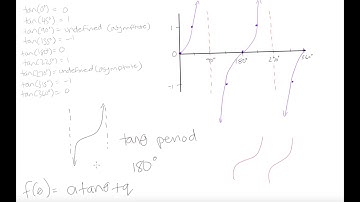 tan(0°) = 0
tan(45°) = 1
tan(90°) = undefined (asymptote)
tan(135°) = -1
tan(180°) = 0
tan(225°) = 1
tan(270°) = undefined (asymptote)
= -1
tan(360°) = 0
1
-1
90°
180°
270°
360°
tanθ period
180°
f(θ) = a tanθ + q